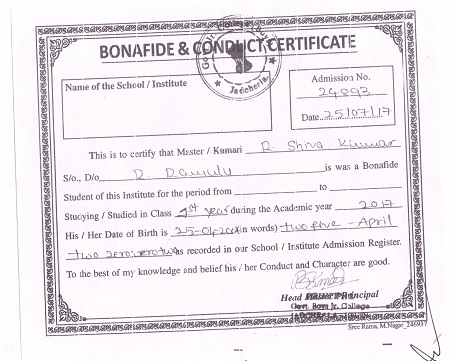 BONAFIDE & CONDUCT CERTIFICATE
Jadcherla
Name of the School / Institute
Admission No.
24893
Date 25/07/17
This is to certify that Master / Kumari B. Shiva Kumar
S/o., D/o is was a Bonafide
Student of this Institute for the period from to
Studying / Studied in Class 1st year during the Academic year 2017
His / Her Date of Birth is 25-04-200 (in words) twofive - April
two zero zero two as recorded in our School / Institute Admission Register.
To the best of my knowledge and belief his / her Conduct and Character are good.
Head Principal
Govt. Boys Jr. College
Sree Rama, M.Nagar_246937